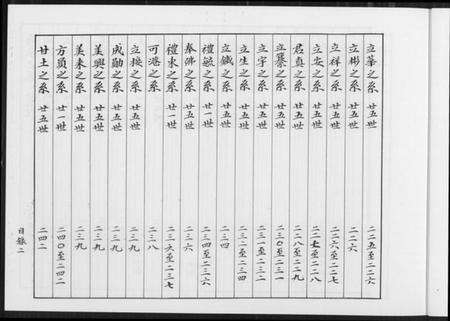 立華之系 廿五世 二二五至二二六
立彬之系 廿五世 二二六
立祥之系 廿五世 二二六至二二七
立安之系 廿五世 二二七至二二八
君真之系 廿五世 二二八至二二九
立蘩之系 廿五世 二三〇至二三一
立宇之系 廿五世 二三一至二三二
立生之系 廿五世 二三二至二三四
立鐵之系 廿五世 二三四
禮毓之系 廿一世 二三四至二三六
奉渊之系 廿五世 二三六
禮來之系 廿一世 二三六至二三七
可鴻之系 二三八
立挨之系 廿五世 二三九
成勛之系 廿五世 二三九
美興之系 廿五世 二三九
美來之系 廿五世 二三九
方頭之系 廿一世 二四〇至二四二
廿土之系 廿五世 二四二
目錄二